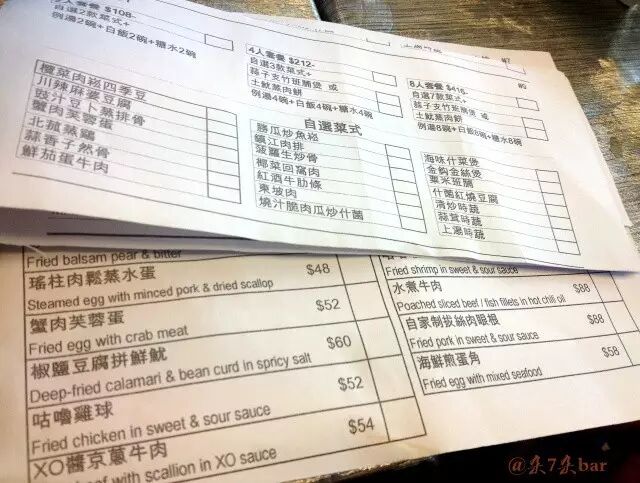 人套餐 $108-
自選2款菜式+
例湯2碗+白飯2碗+糖水2碗
4人套餐 $212-
自選3款菜式+
蒜子支竹斑腩煲 或
土魷蒸肉餅
例湯4碗+白飯4碗+糖水4碗
#9
8人套餐 $416-
自選7款菜式+
蒜子支竹斑腩煲 或
土魷蒸肉餅
例湯8碗+白飯8碗+糖水8碗
自選菜式
欖菜肉崧四季豆
川辣麻婆豆腐
豉汁豆卜蒸排骨
蟹肉芙蓉蛋
北菰蒸鷄
蒜香孑然骨
鮮茄蛋牛肉
勝瓜炒魚崧
鎮江肉排
菠蘿生炒骨
椰菜回窩肉
紅酒牛肋條
東坡肉
燒汁脆肉瓜炒什菌
海味什菜煲
金鈎金絲煲
粟米斑腩
什菌紅燒豆腐
清炒時蔬
蒜茸時蔬
上湯時蔬
Fried balsam pear & bitter
瑤柱肉鬆蒸水蛋 $48
Steamed egg with minced pork & dried scallop
蟹肉芙蓉蛋 $52
Fried egg with crab meat
椒鹽豆腐拼鮮魷 $60
Deep-fried calamari & bean curd in spicy salt
咕嚕雞球 $52
Fried chicken in sweet & sour sauce
XO醬京蔥牛肉 $54
beef with scallion in XO sauce
Fried shrimp in sweet & sour sauce
水煮牛肉 $88
Poached sliced beef / fish fillets in hot chili oil
自家制拔絲肉眼根 $88
Fried pork in sweet & sour sauce
海鮮煎蛋角 $58
Fried egg with mixed seafood
@朵7朵bar